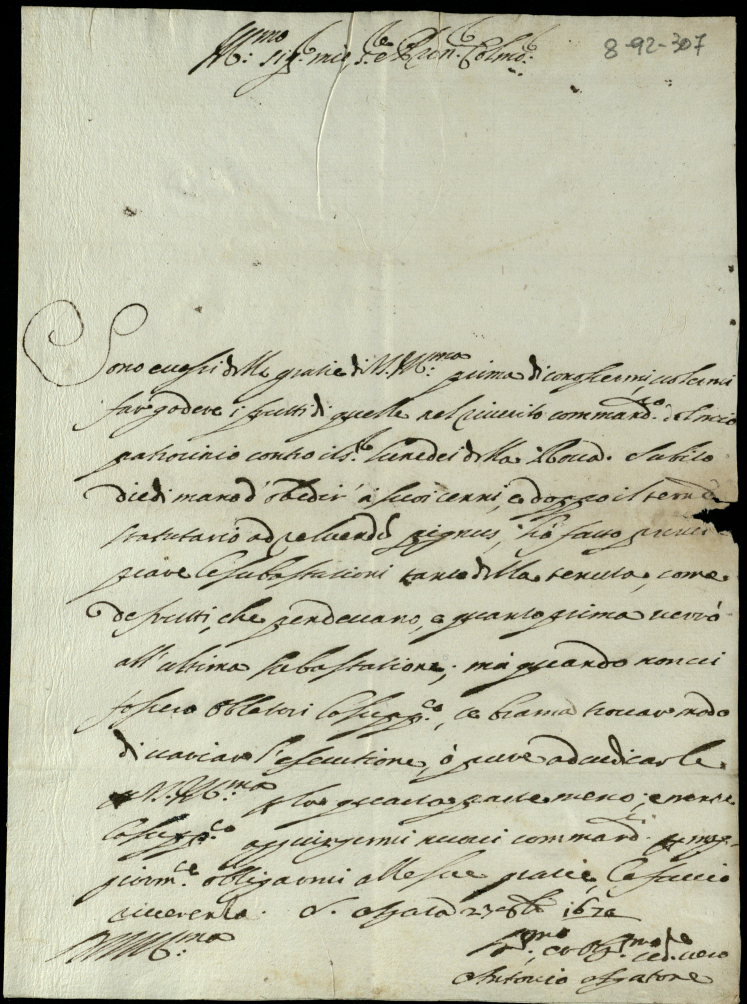 Ill.mo Sig.r mio S.re e P.ron Col.mo
8-92-307
Sono eccessi delle gratie di V.S. Ill.ma prima di conoscermi, volermi
far godere i frutti di quelle nel riverito command.to del mio
patrocinio contro il S.r della Subito
diedi mano d'obedir' a suoi cenni, e doppo il term.e
statutario ad reluendũ pignus, hò fatto princi
piare le subastationi tanto della tenuta, come
de frutti, che pendevano, e quanto prima verrò
all'ultima subastatione; mà quando non vi
fossero oblatori la supp.co, se brama trovar modo
di variar l'esecutione, ò pure adiudicarle
à V.S. Ill.ma p la quarta parte meno; e ne
la supp.co aggiungermi nuovi command.ti p mag
giorm.te obligarmi alle sue gratie, le faccio
riverenza. 167
V.S. Ill.ma
et Obl.mo ser.re vero
Antonio